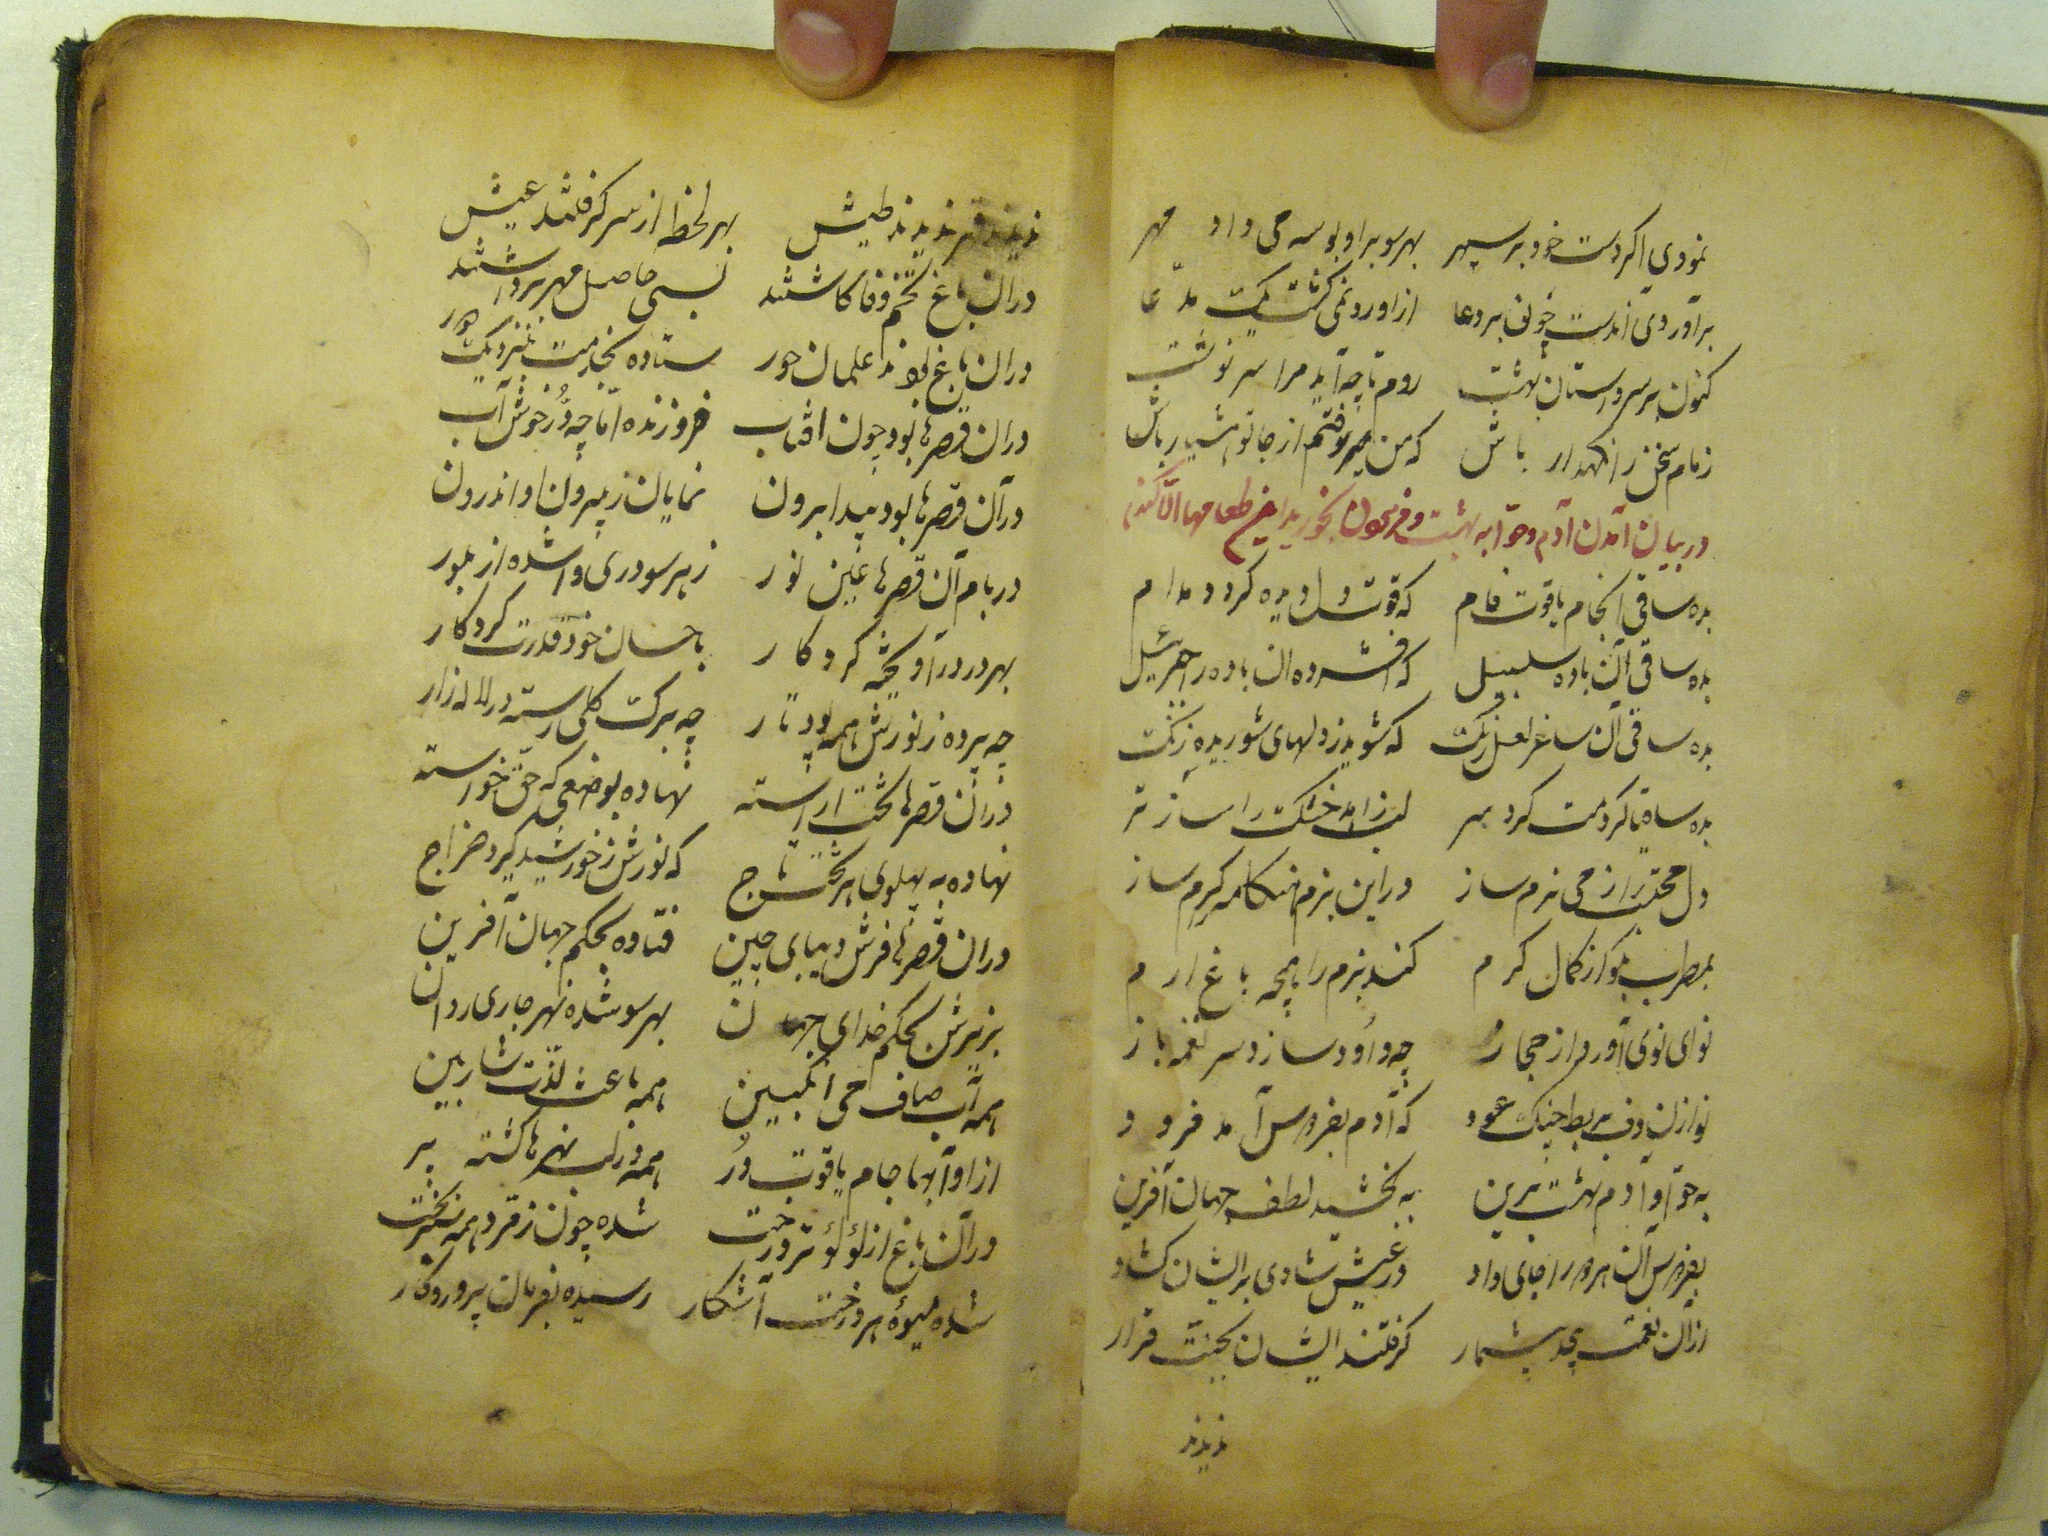 نمودی اکر دست خود بر سپهر بهر سو براو بوسه می داد مهر
برآوردی از دست چون بر دعا از او رد نمی کشت یک مدّعا
کنون بر سر داستان بهشت روم تا چه آید مرا سرنوشت
زمام سخن را نکهدار باش که من میرفتم از جا تو هشیار باش
در بیان آمدن آدم و حوّا به بهشت و فرمودن بخورید طعامها الّا کندم
بده ساقی جام یاقوت فام که قوت دل و دیده کردد مدام
بده ساقی آن باده سلسبیل که افشرده ان باده را جبرئیل
بده ساقی آن ساغر لعل رنک که شوید ز دلهای شوریده زنک
بده ساقیا کردمت کرد سر لب زاهد خشک را ساز تر
دل محتسب را ز می نرم ساز در این بزم هنکامه کرم ساز
بمطرب بکو از کمال کرم کند بزم را همچه باغ ارم
نوای نوی آورد از حجاز چه داود سازد سر نغمه باز
نوازن دف بربط چنک عود که آدم بفردوس آمد فرود
به حوّا و آدم بهشت برین به بخشید لطف جهان آفرین
بفردوس آن هر دو را جای داد در عیش شادی بر ایشان کشاد
از آن نعمت بیحد بیشمار کرفتند ایشان بجنّت قرار
ندیدند
ندیدند قهر ندیدند طیش بهر لحظه از سر کرفتند عیش
در ان باغ تخم وفا کاشتند بسی حاصل مهر برداشتند
در ان باغ بودند غلمان حور ستاده بخدمت نزدیک دور
در ان قصرها بود چون افتاب فروزنده امّا چه دُر خوش آب
در آن قصرها بود پیدا برون نمایان ز بیرون او اندرون
در بام آن قصرها عین نور ز هر سو دری وا شده از بلور
بهر در در آویخته کردکار باحسان خود قدرت کردکار
چه پرده ز نورش همه پود تار چه برک کلی رسته در لاله زار
در ان قصرها تخت اراسته نهاده بوضعی که حق خواسته
نهاده به پهلوی هر تخت تاج که نورش ز خورشید کیرد خراج
در ان قصرها فرش دیبای چین فتاده بحکم جهان آفرین
بزیرش بحکم خدای جهان بهر سو شده نهر جاری روان
همه آب صاف می انکبین همه باعث لذّت شاربین
از او آبها جام یاقوت دُر همه در لب نهرها کشته پر
در آن باغ از لؤلؤ تر درخت شده چون زمرد همه سبز بخت
شده میوهٔ هر درخت آشکار رسیده بفرمان پروردکار